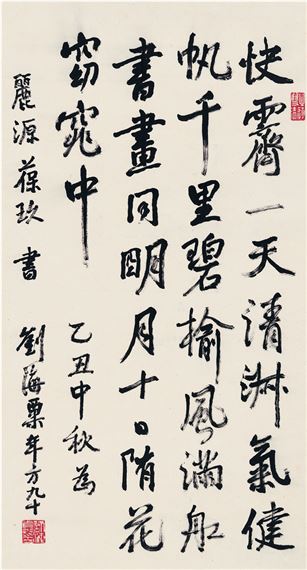 快霽一天清淑氣健
帆千里碧榆風滿舡
書畫同明月十日隋花
窈窕中
乙丑中秋為
麗源葆玖書 劉海粟年方九十